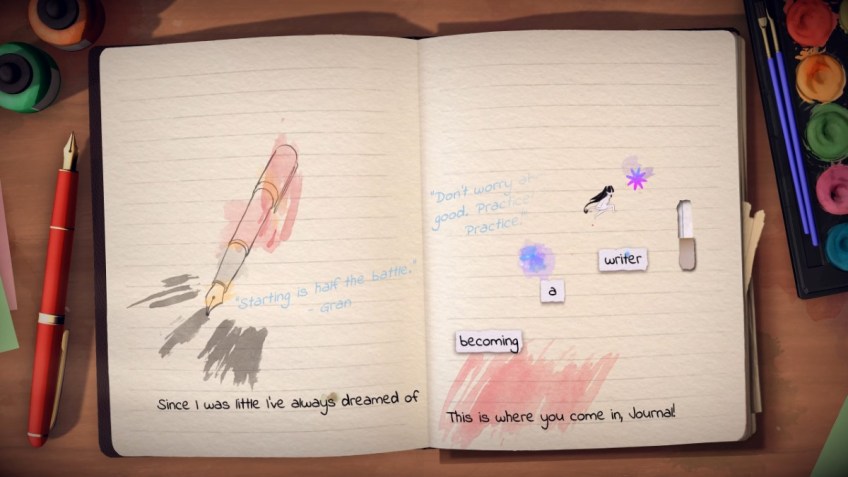 "Starting is half the battle."
- Gran
Since I was little I've always dreamed of
"Don't worry
good. Practice
Practice."
writer
a
becoming
This is where you come in, Journal!